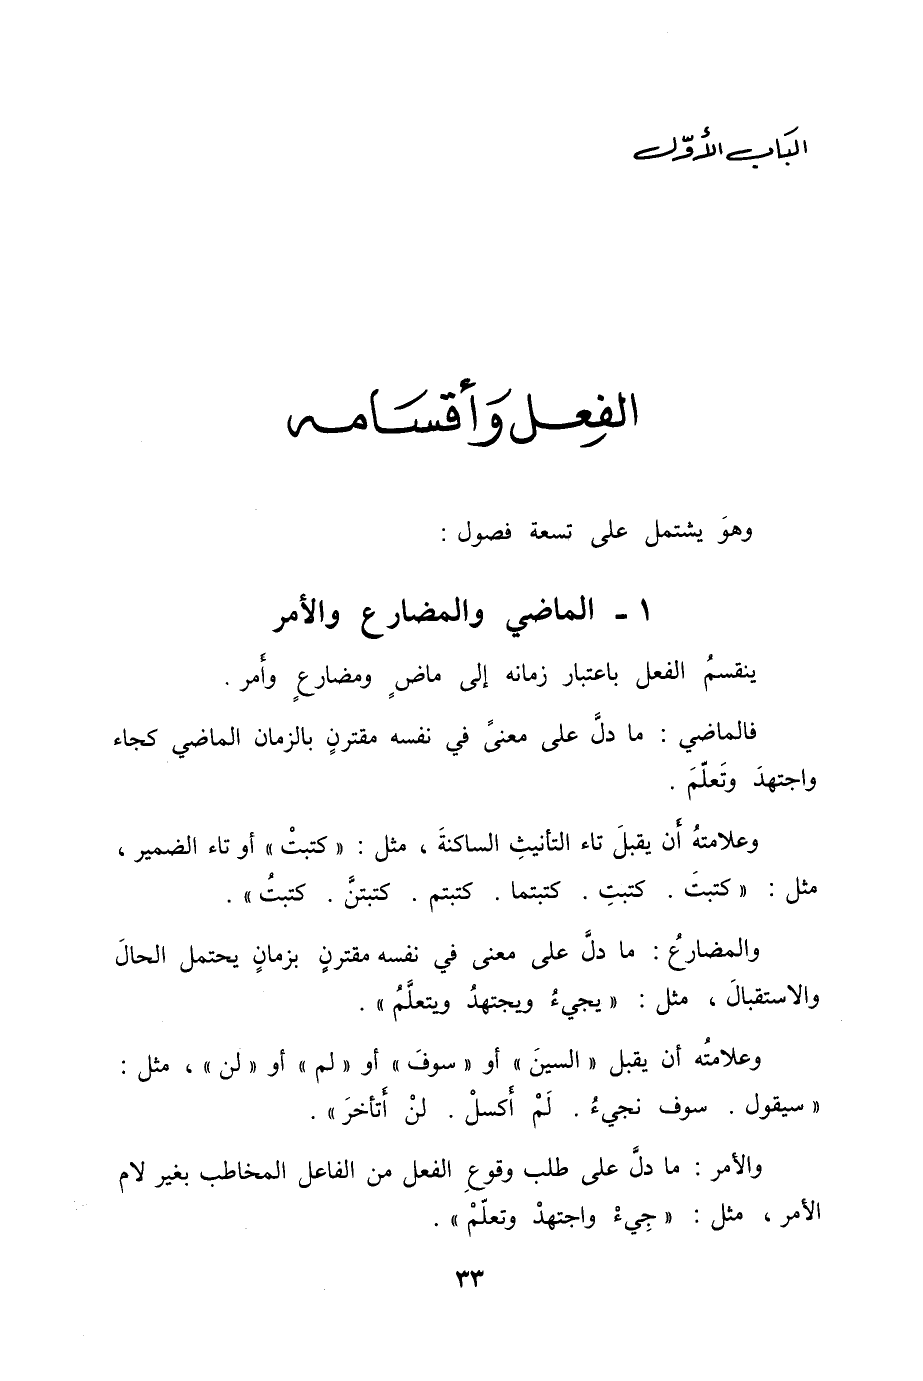 الباب الأوّل
الفِعل وَأقسَامه
وهوَ يشتمل على تسعة فصول :
١ - الماضي والمضارع والأمر
ينقسمُ الفعل باعتبار زمانه إلى ماضٍ ومضارعٍ وأَمر .
فالماضي : ما دلَّ على معنىً في نفسه مقترنٍ بالزمان الماضي كجاء
واجتهدَ وتَعلّمَ .
وعلامتهُ أَن يقبلَ تاء التأنيثِ الساكنةَ ، مثل : « كتبتْ » أو تاء الضمير ،
مثل : « كتبتَ . كتبتِ . كتبتما . كتبتم . كتبتنَّ . كتبتُ » .
والمضارعُ : ما دلَّ على معنى في نفسه مقترنٍ بزمانٍ يحتمل الحالَ
والاستقبالَ ، مثل : « يجيءُ ويجتهدُ ويتعلَّمُ » .
وعلامتُه أن يقبل « السينَ » أو « سوفَ » أو « لم » أو « لن » ، مثل :
« سيقول . سوف نجيءُ . لَمْ أَكسلْ . لنْ أَتأخرَ » .
والأمر : ما دلَّ على طلب وقوعِ الفعل من الفاعل المخاطب بغير لام
الأمر ، مثل : « جِيءْ واجتهدْ وتعلّمْ » .
٣٣